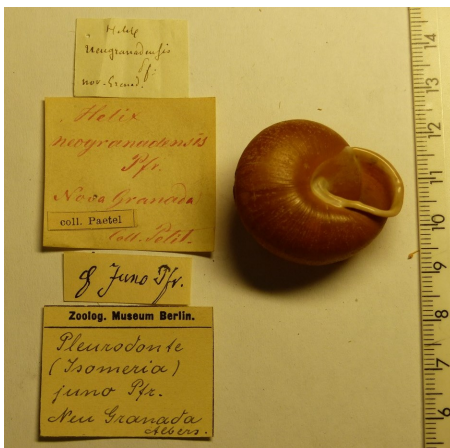 Helix
neogranadensis
Pfr.
nov. Granad.
Helix
neogranadensis
Pfr.
Nova Granada
coll. Paetel
Coll. Petit.
Juno Pfr.
Zoolog. Museum Berlin.
Pleurodonte
(Isomeria)
juno Pfr.
Neu Granada
Albers.
14
13
12
11
10
9
8
7
6